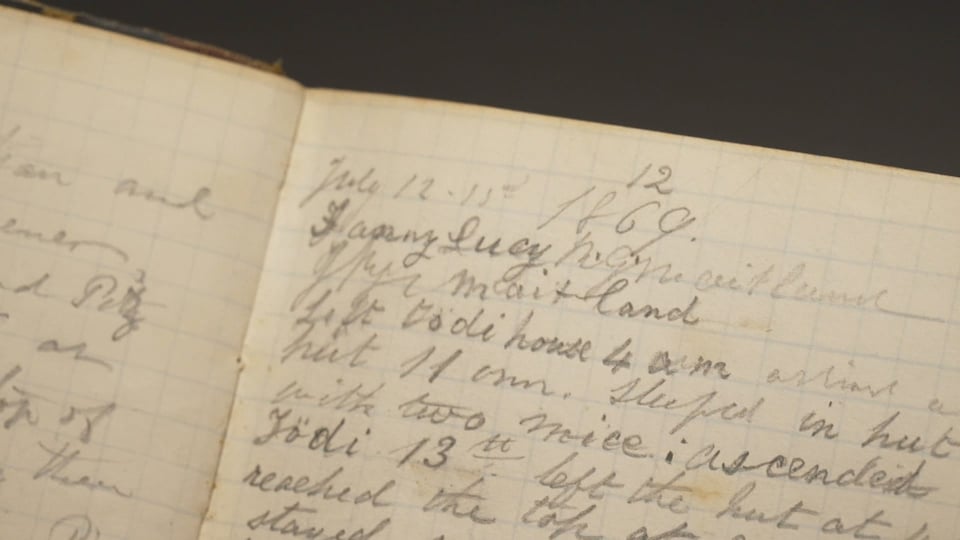 and
Pitz
at
top of
then
12
July 12-13th 1869.
Fanny Lucy
Maitland
left Tödi house 4 am
hut 11 am. Sleeped in hut
with two mice. ascended
Tödi 13th. left the hut at
reached the top at
stayed